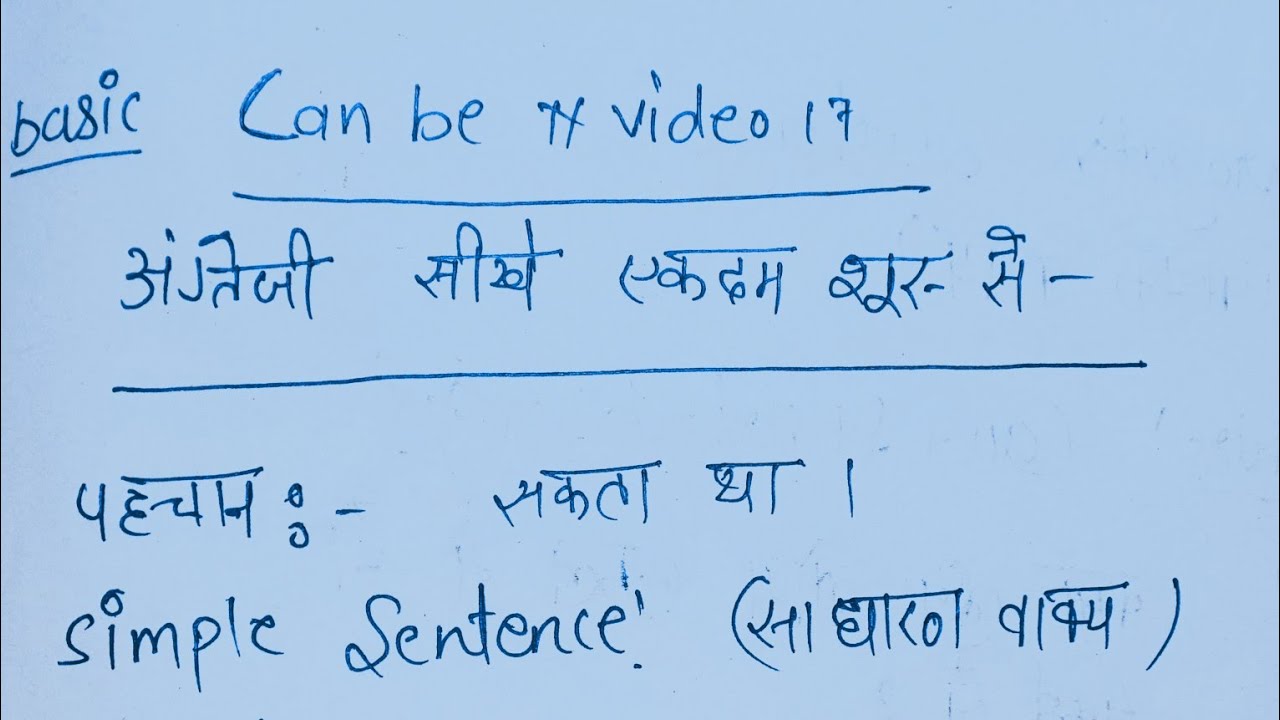 basic Can be # video 17
अंग्रेजी सीखे एकदम शूरू से -
पहचान :- सकता था ।
Simple Sentence! (साधारण वाक्य)